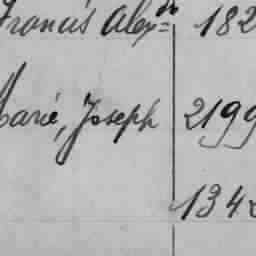 Francis Alexdr 182
Marie, Joseph 2199
1342